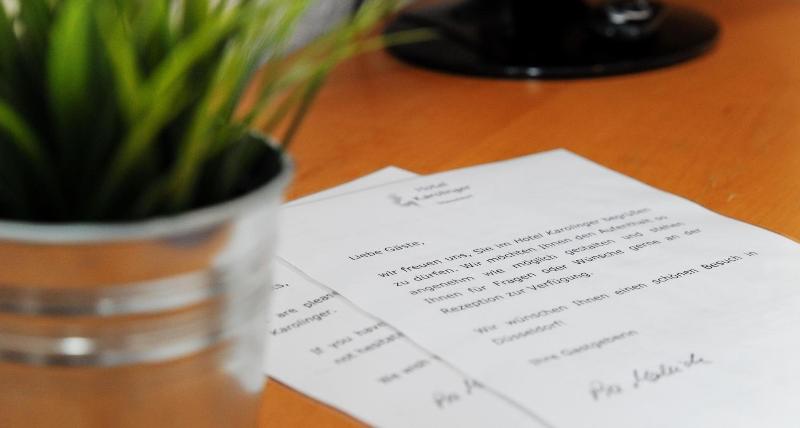 Hotel
Karolinger
Liebe Gäste,
wir freuen uns, Sie im Hotel Karolinger begrüßen
zu dürfen. Wir möchten Ihnen den Aufenthalt so
angenehm wie möglich gestalten und stehen
Ihnen für Fragen oder Wünsche gerne an der
Rezeption zur Verfügung.
Wir wünschen Ihnen einen schönen Besuch in
Düsseldorf!
Ihre Gastgeberin
are pleas
Karolinger.
If you have
not hesitate
We wish